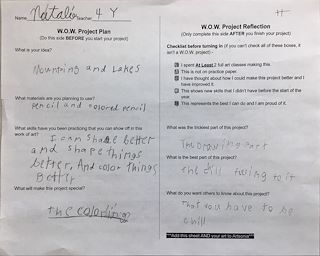 Name Natalie Teacher 4 Y
W.O.W. Project Plan
(Do this side BEFORE you start your project)
What is your idea?
Mounting and Lakes
What materials are you planning to use?
Pencil and colored pencil
What skills have you been practicing that you can show off in this
work of art?
I can shade better
and shape things
better, And color things
Better
What will make this project special?
the coloring
W.O.W. Project Reflection
(Only complete this side AFTER you finish your project)
Checklist before turning in (if you can't check all of these boxes, it
isn't a W.O.W. project) -
I spent At Least 2 full art classes making this.
This is not on practice paper.
I have thought about how I could make this project better and I have
improved it.
This shows new skills that I didn't have before the start of the
year.
This represents the best I can do and I am proud of it.
What was the trickiest part of this project?
The drawing part
What is the best part of this project?
the
to it
What do you want others to know about this project?
That you have to be
chill
**Add this sheet AND your art to Artsonia**